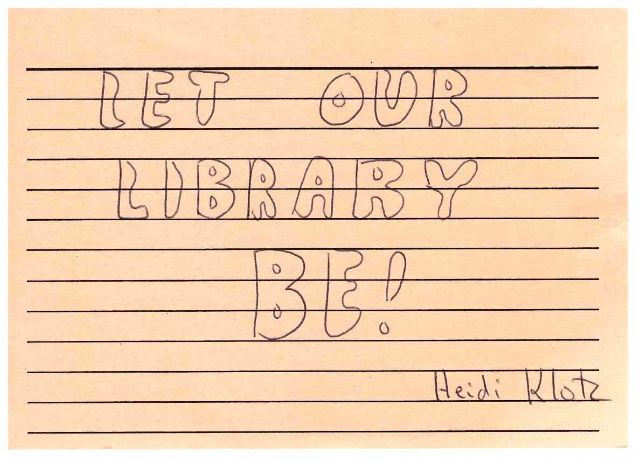 LET OUR
LIBRARY
BE!
Heidi Klotz